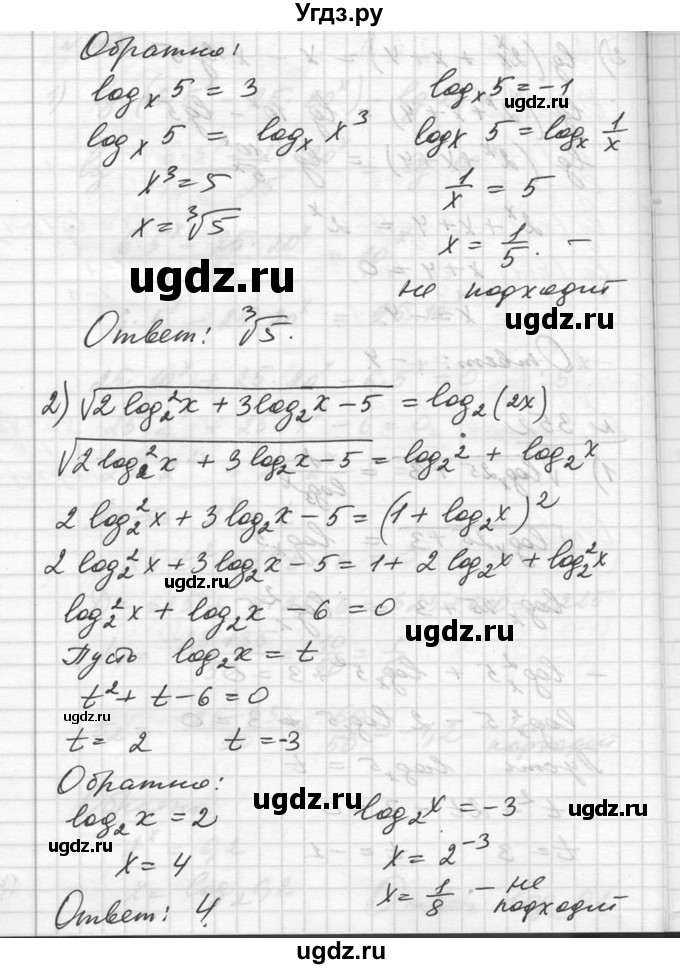 Угдз.ру
Обратно:
log_x 5 = 3    log_x 5 = -1
ugdz.ru
log_x 5 = log_x x^3    log_x 5 = log_x 1/x
x^3 = 5    1/x = 5
x = ∛5    x = 1/5. –
ugdz.ru
не подходит
ugdz.ru
Ответ: ∛5.
2) √(2 log_2^2 x + 3 log_2 x - 5) = log_2 (2x)
√(2 log_2^2 x + 3 log_2 x - 5) = log_2 2 + log_2 x
2 log_2^2 x + 3 log_2 x - 5 = (1 + log_2 x)^2
2 log_2^2 x + 3 log_2 x - 5 = 1 + 2 log_2 x + log_2^2 x
ugdz.ru
log_2^2 x + log_2 x - 6 = 0
ugdz.ru
Пусть log_2 x = t
t^2 + t - 6 = 0
ugdz.ru
t = 2    t = -3
Обратно:
ugdz.ru    ugdz.ru
log_2 x = 2    log_2 x = -3
ugdz.ru
x = 4    x = 2^-3
x = 1/8 – не подходит
ugdz.ru
Ответ: 4.
ugdz.ru